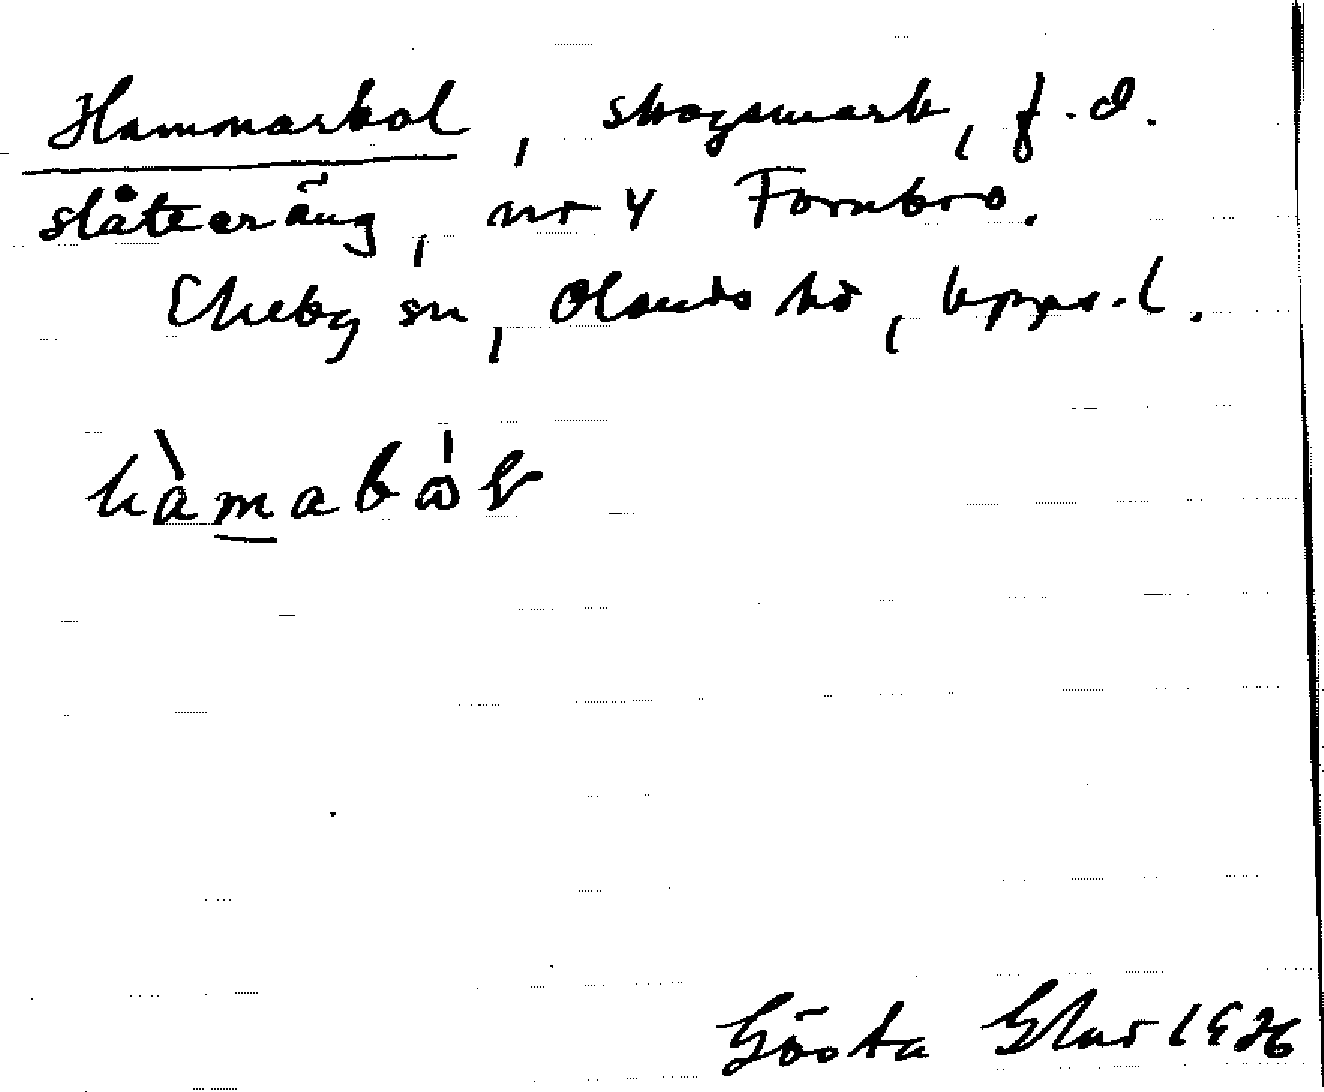 Hammarbol, skogsmark, f.d.
slåtteräng, nr 4 Fornbro.
Ekeby sn, Olands hd, Upps.l.
hàmabω̊
Gösta 1936